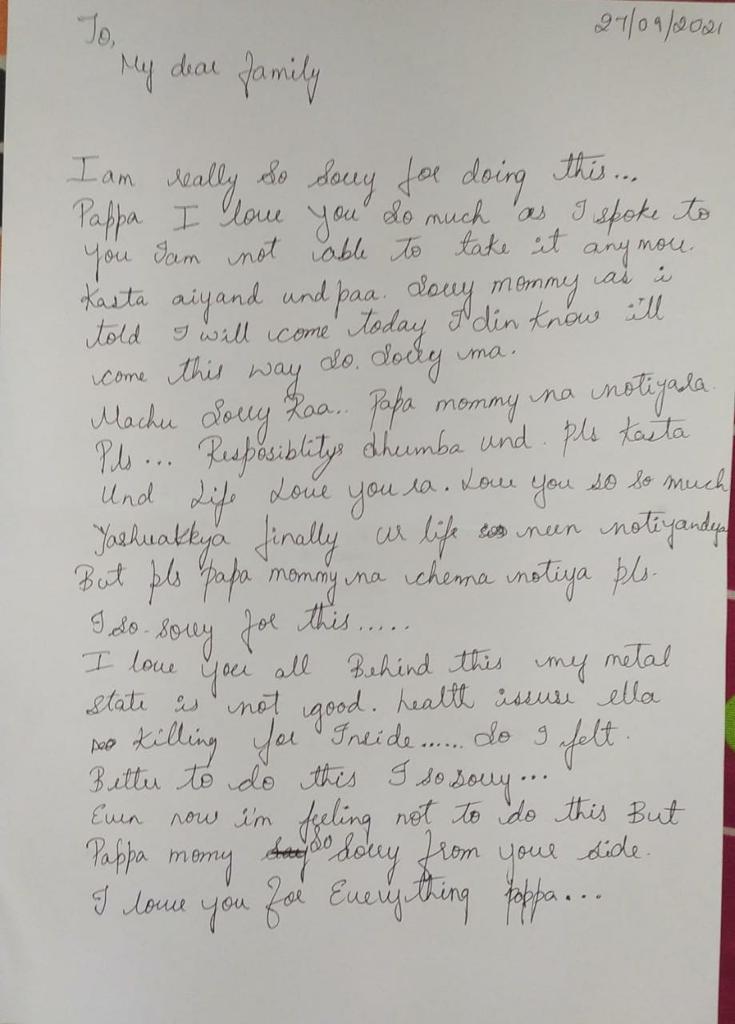 27/09/2021
To,
My dear family
I am really so sorry for doing this...
Pappa I love you so much as I spoke to
you I am not able to take it anymore.
Kasta aiyand und paa. Sorry mommy as i
told I will come today I din know ill
come this way so. Sorry ma.
Machu Sorry Raa.. Papa mommy na notiyala.
Pls... Resposiblitys dhumba und. pls Kasta
Und Life Love you ra. Love you so so much
Yashuakkya finally ur life neen notiyandya
But pls papa mommy na chenna notiya pls.
I so. sorry for this.....
I love you all Behind this my metal
state is not good. health issuse ella
killing for Inside...... So I felt.
Better to do this I so sorry...
Even now i'm feeling not to do this But
Pappa momy so Sorry from your side.
I love you for Everything pappa...